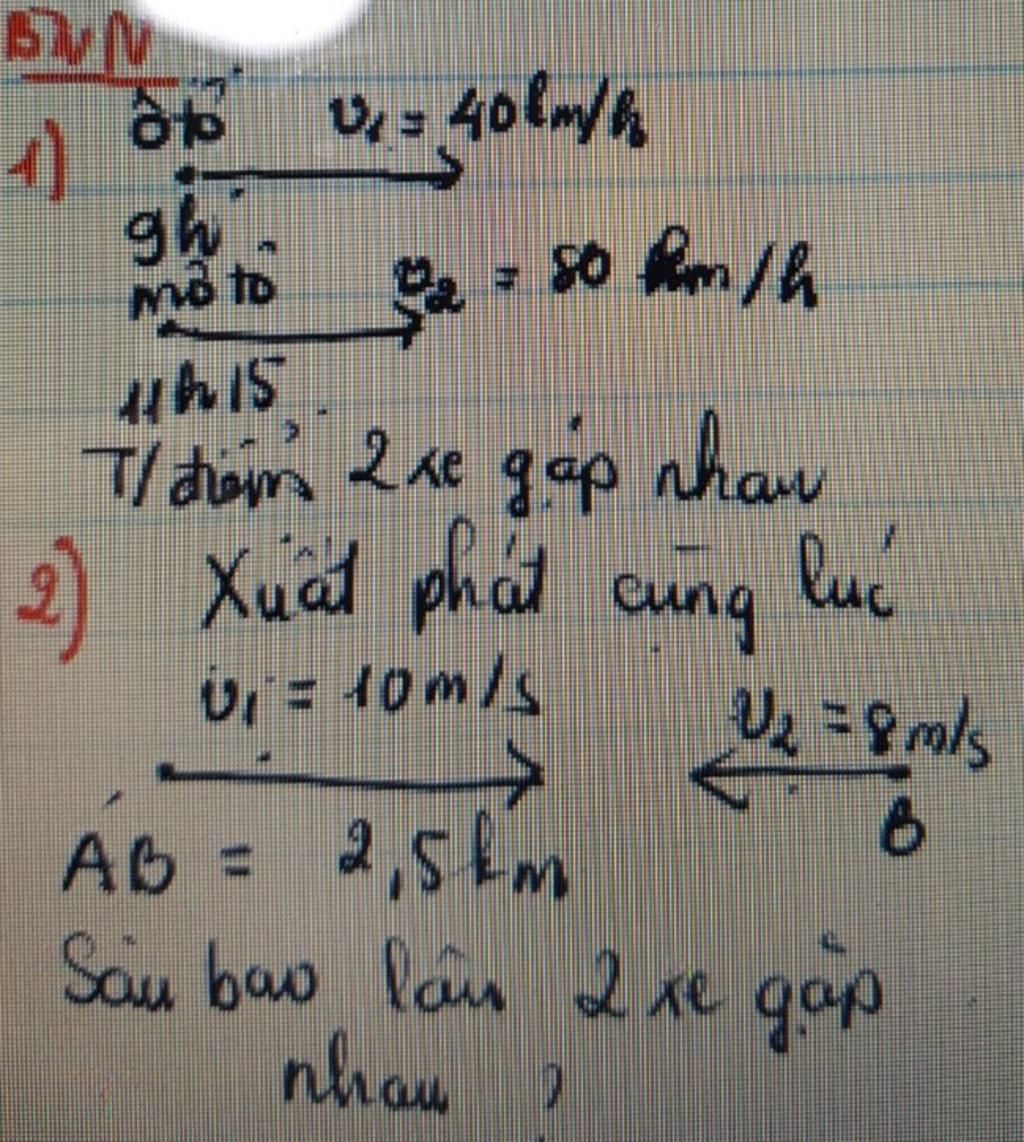 BVN
1) Ô tô v₁ = 40 km/h
9h
mô tô v₂ = 80 km/h
11h15
T/điểm 2 xe gặp nhau
2) Xuất phát cùng lúc
v₁ = 10 m/s v₂ = 8 m/s
B
AB = 2,5 km
Sau bao lâu 2 xe gặp
nhau ?